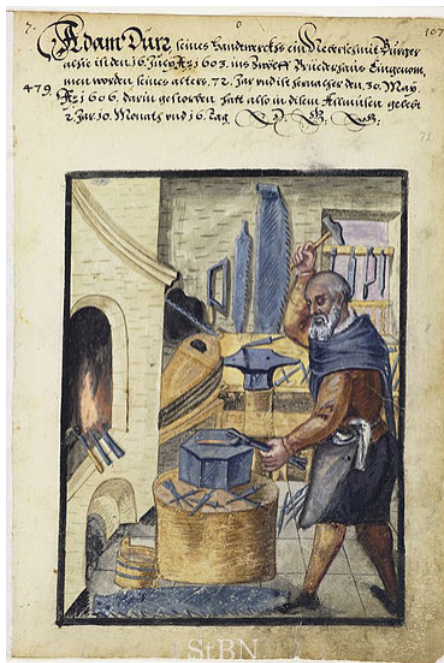 7. 107
Adam Dürr seines Handwercks ein Neberschmit Burger
alhie ist den 16 July Aō 1603. ins Zwölff Brüederhaus Eingenom„
men worden seines alters. 72. Jar vnd ist hernacher den. 30. May.
479. Aō 1606. darin gestorben hatt also in disem Allmusen gelebt
2. Jar. 10. Monath vnd 16. Tag
StBN